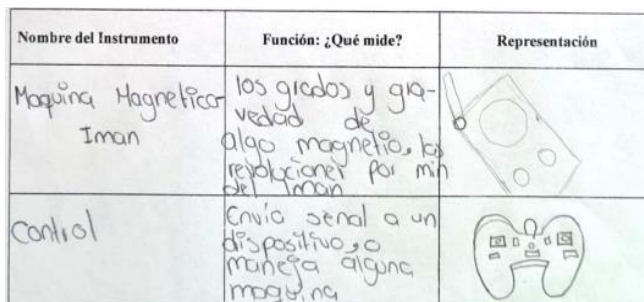 Nombre del Instrumento
Función: ¿Qué mide?
Representación
Maquina Magnetica
Iman
los grados y gra-
vedad de
algo magnetio, las
revoluciones por min
del iman
Control
Envia señal a un
dispositivo, o
maneja alguna
maquina